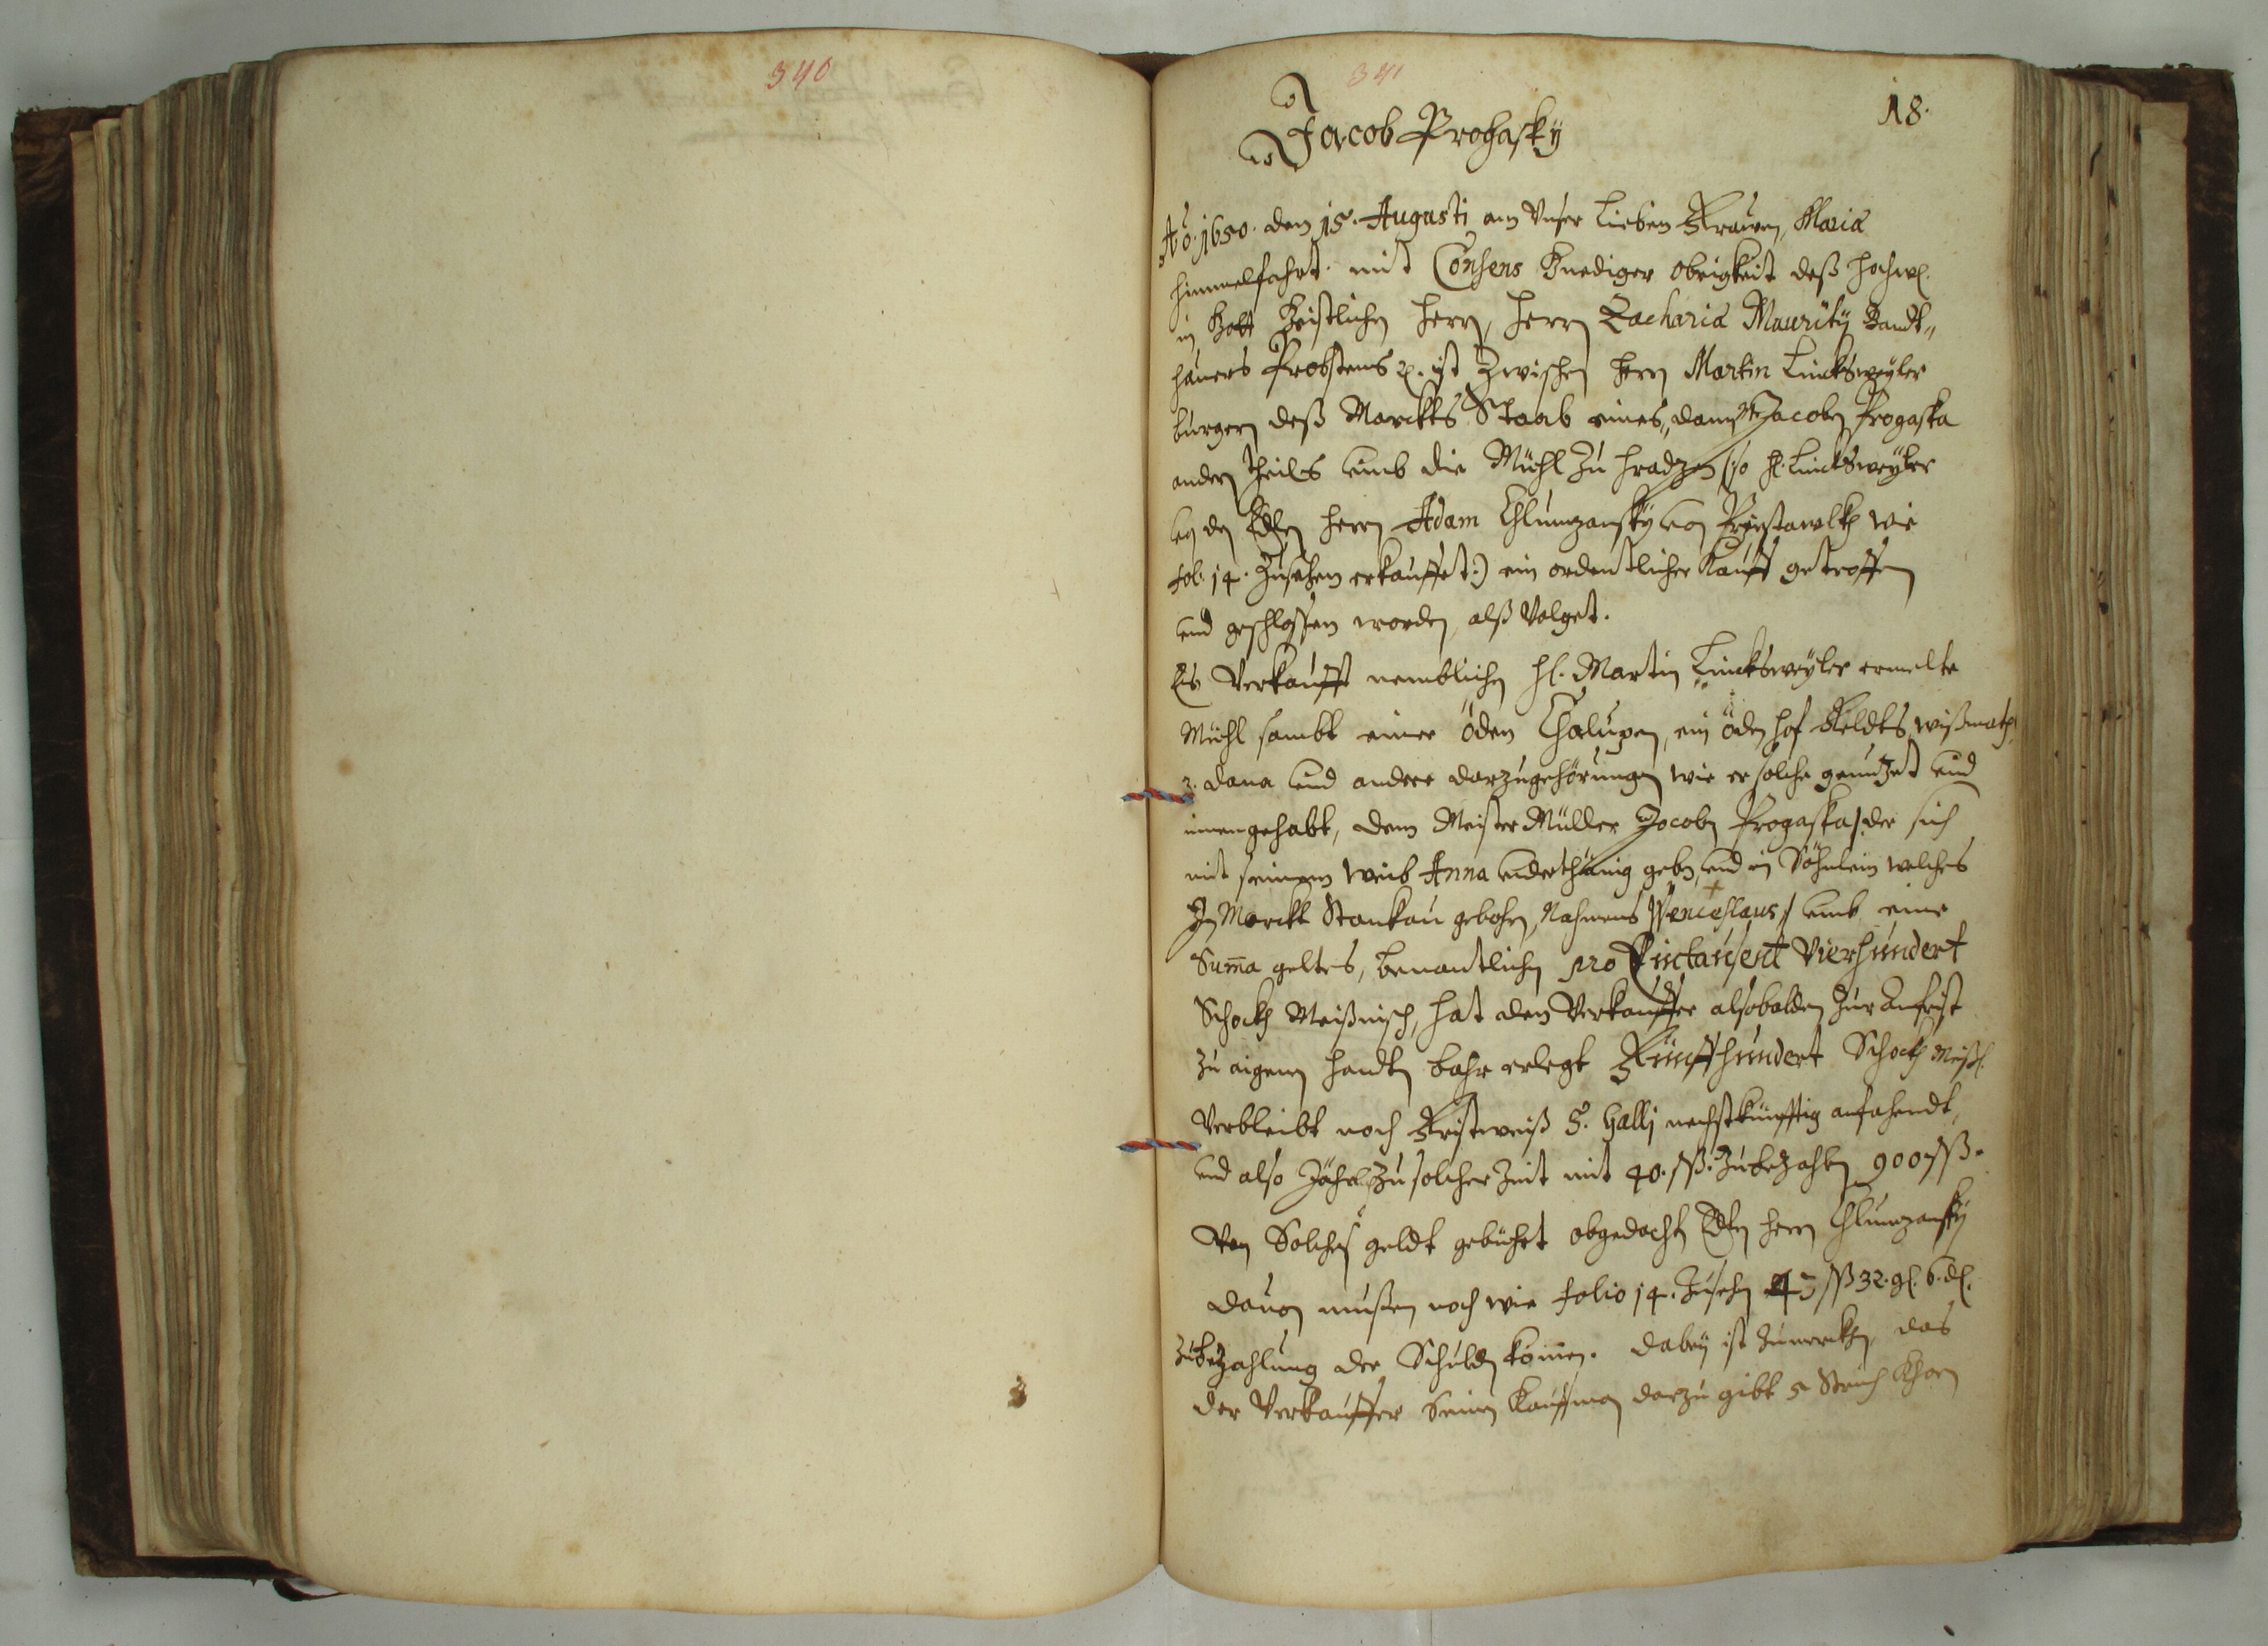 340
341
18.
Jacob Prohasky
Aõ. 1650. den 15. Augusti am Vnser Lieben Frawen, Mariæ
himmelfahrt. mit Consens Gnediger obrigkeit deß hochw.
in Gott Geistlichen Herrn, Herrn Zachariæ Maurity Bandt„
hauers Probstens ꝛc. ist Zwischen Herrn Martin Lincksweyler
burgern deß Marckts Staab eines, dann Jacoben Progaska
andern Theilss umb die Mühl Zu Hradzen (:so H. Lincksweyler
von den Edlen Herrn Adam Chlumzansky von Przestawlk wie
fol. 14. Zusehen erkauffet:) ein ordentlicher Kauff getroffen
und geschlossen worden, alß Volget.
Es Verkaufft nemblichen H. Martin Lincksweyler ermelte
Mühl sambt einer öden Chalupen, ein öden hof Feldts, wißmath,
dana und andere darzugehörungen wie er solche genutzet und
innengehabt, dem Meister Müller Jacoben Progaska /: der sich
mit seinem Weib Anna underthänig geben, und ein Söhnlein welches
In Marckt Stankau gebohren, Nahmens Wenceslaus :/ umb eine
Suma geltes, benantlichen pro Eintausent Vierhundert
Schock Meißnisch, hat dem Verkauffer alsobalden Zur Anfrist
zu aigenen handen bahr erlegt Fünffhundert Schock Meiß.
Verbleibt noch Fristweiß S. Gallj nechstkünfftig anfahendt,
und also Jährl. Zu solcher Zeit mit 40. ßß. Zubezahlen 900 ßß.
Von Solches geldt gebührt obgedachten Edlen Herrn Chlumzansky
dauon müßen noch wie folio 14. Zusehen 43 ßß 32. gl. 6. dl.
zubezahlung der Schulden komen. dabey ist Zumercken, das
der Verkauffer seinen Kauffman darzu gibt 5 Strich Khorn